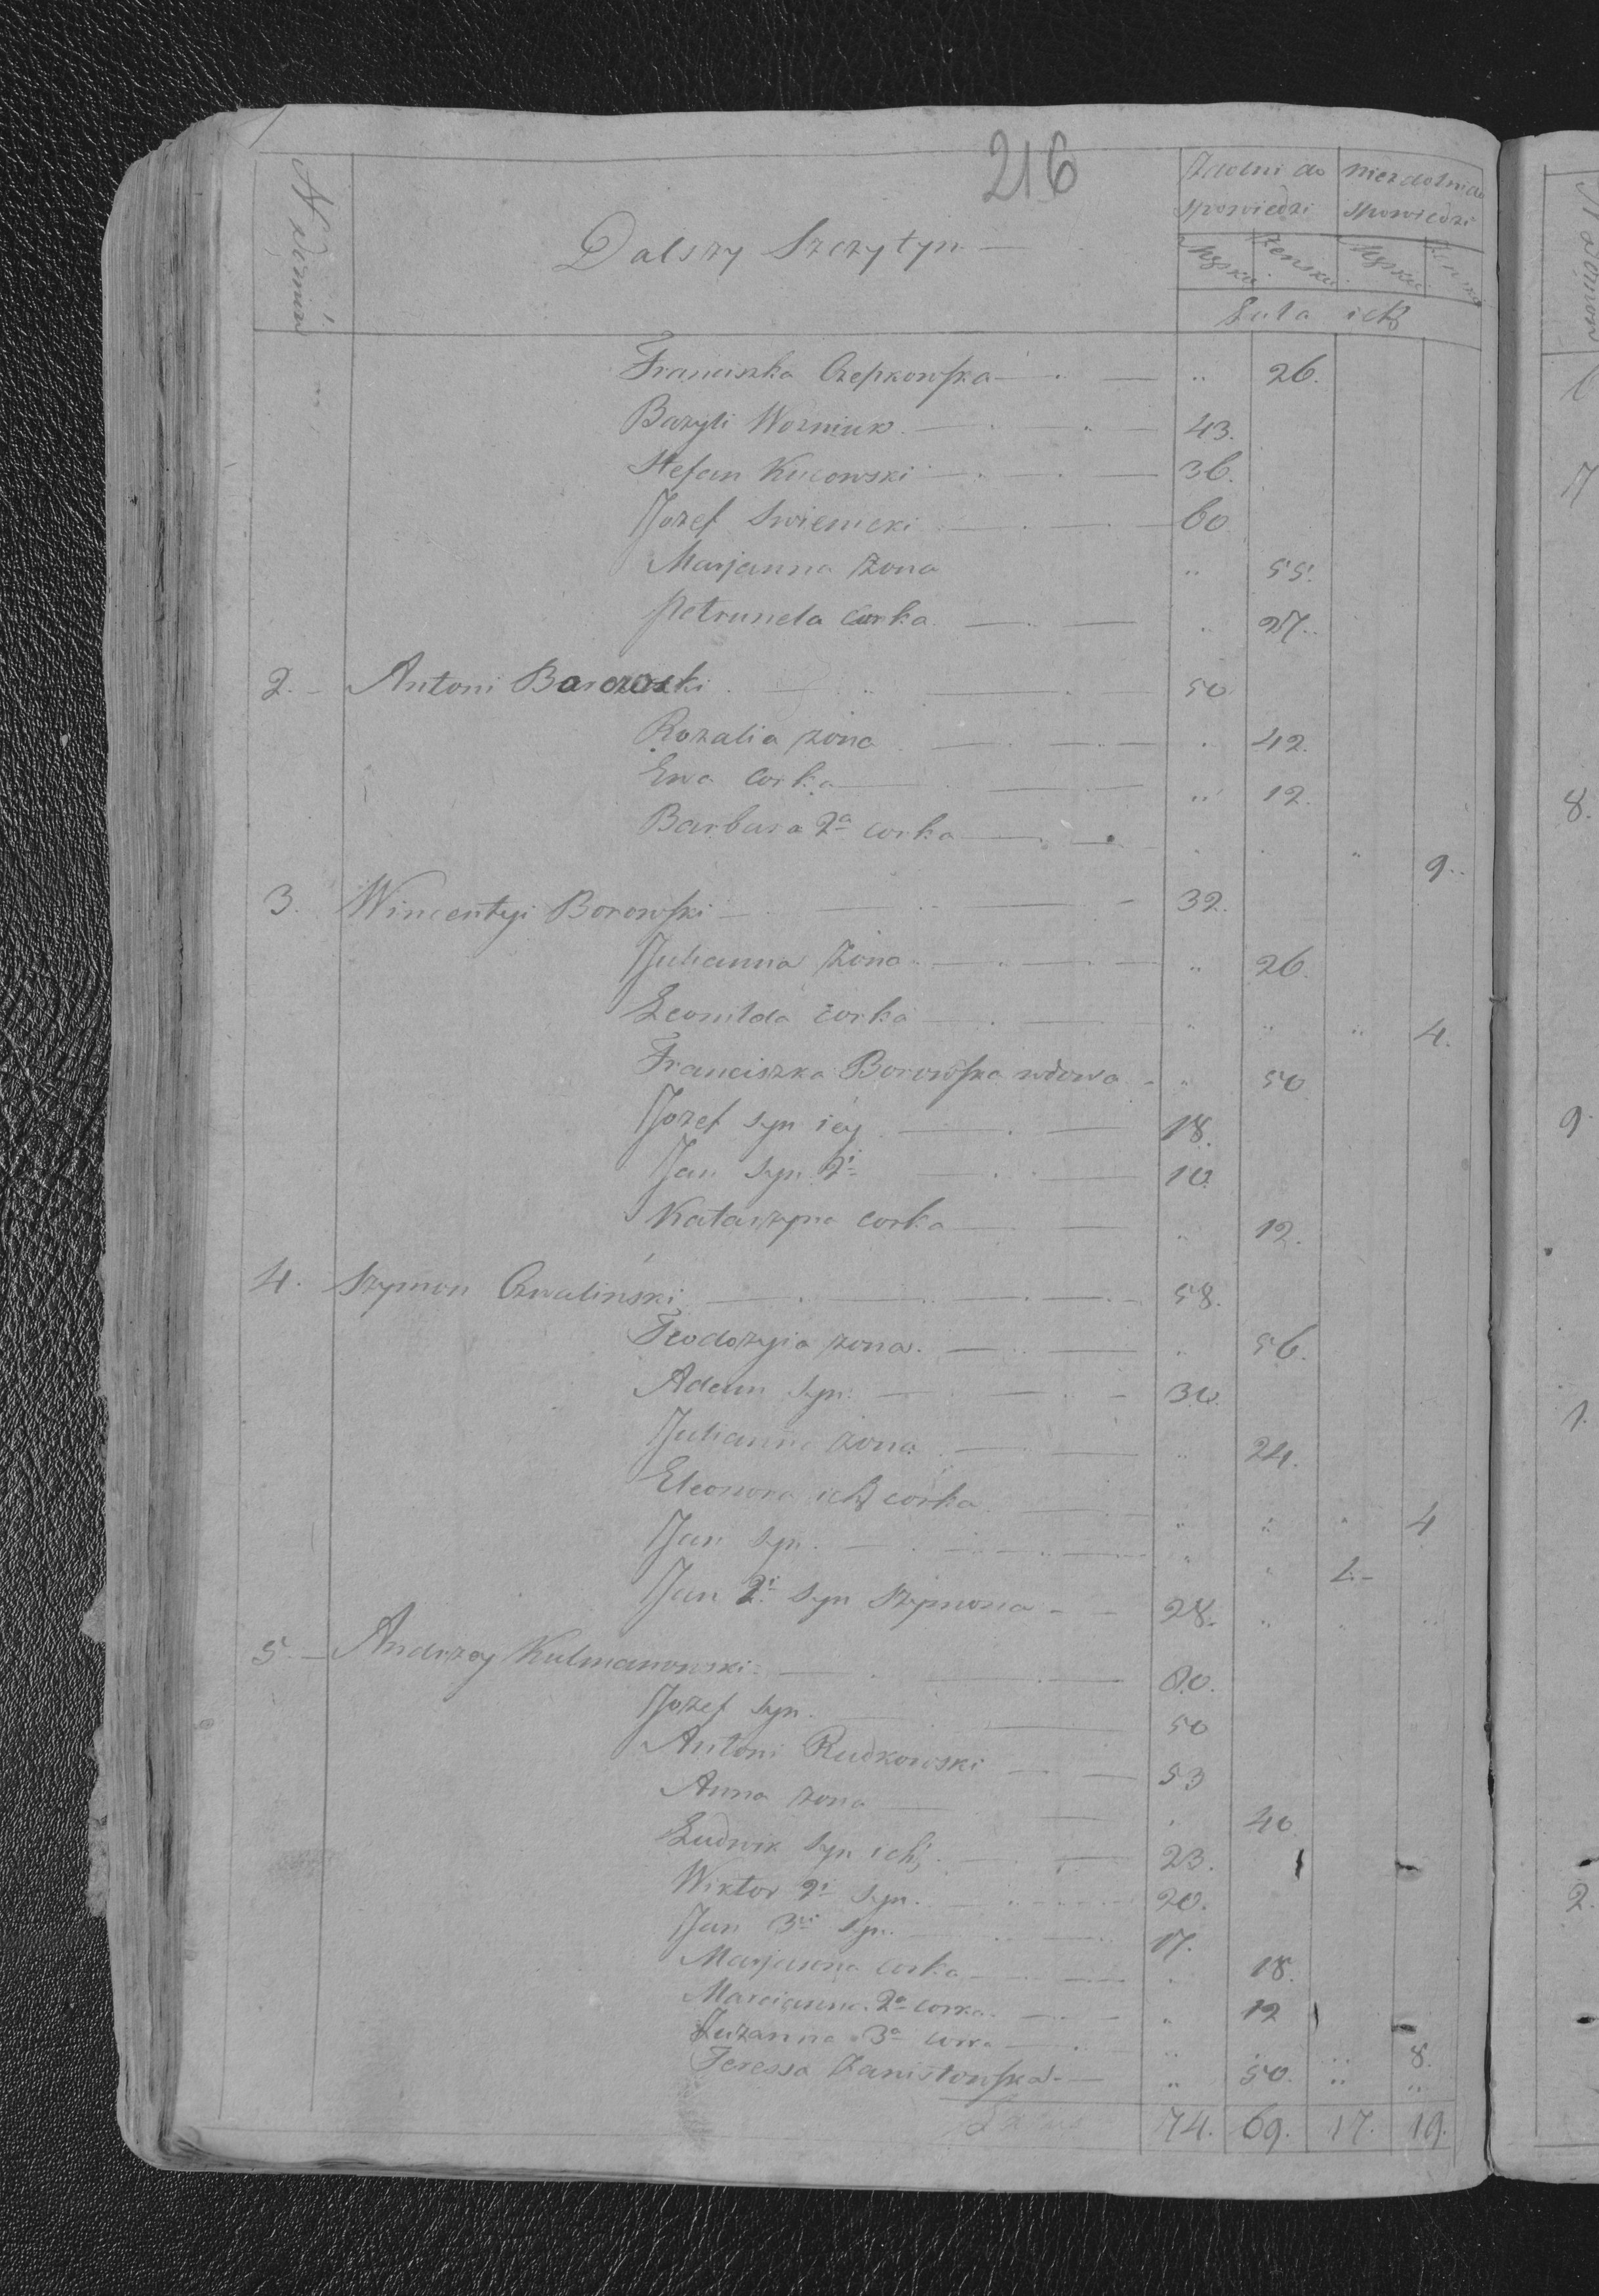 216
N domów
Dalszy Szczytyn
Zdolni do Spowiedzi
Niezdolni do Spowiedzi
Męska Żeńska Męska Żeńska
Lata ich
Franciszka Czepkowska 26.
Bazyli Wozniuk 43.
Stefan Kucowski 36.
Jozef Swienicki 60
Marjanna żona 55.
Petrunela Corka 27.
2. Antoni Barczaski 50
Rozalia żona 42.
Ewa Corka 12.
Barbara 2a corka 9.
3. Wincentyi Borowski 32.
Julianna Żona 26.
Leonilda corka 4.
Franciszka Borowska wdowa 50
Jozef syn iey 18.
Jan syn 2i 10.
Katarzyna corka 12.
4. Szymon Czwaliński 58.
Teodozyia żona 56.
Adam syn 30.
Julianna żona 24.
Eleonora ich corka 4
Jan syn 1.
Jan 2i syn Szymona 28.
5. Andrzey Kulmanowski 80.
Jozef syn 50
Antoni Rudkowski 53
Anna żona 40
Ludwik syn ich 23.
Wiktor 2i syn 20.
Jan 3ci syn 17.
Marjanna corka 18.
Marcianna 2a corka 12
Zuzanna 3a corka 8.
Teressa Zanistowska 50.
74. 69. 17. 19.
7
8.
9
1.
2.